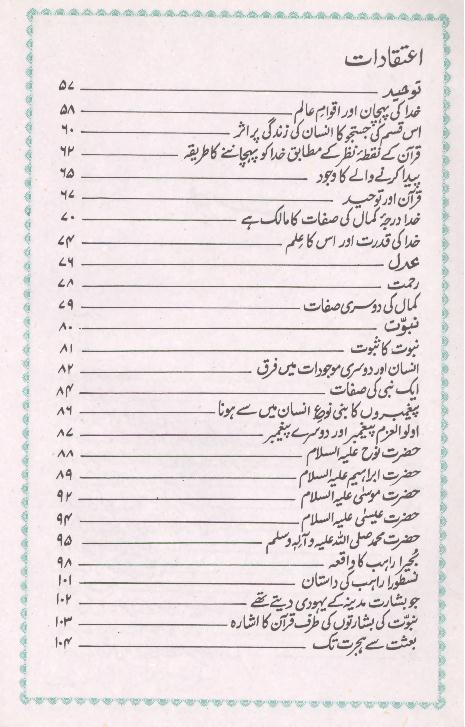 اعتقادات
توحید ۵۷
خدا کی پہچان اور اقوامِ عالم ۵۸
اس قسم کی جستجو کا انسان کی زندگی پر اثر ۶۰
قرآن کے نقطۂ نظر کے مطابق خدا کو پہچاننے کا طریقہ ۶۲
پیدا کرنے والے کا وجود ۶۵
قرآن اور توحید ۶۷
خدا درجۂ کمال کی صفات کا مالک ہے ۷۰
خدا کی قدرت اور اس کا علم ۷۴
عدل ۷۶
رحمت ۷۸
کمال کی دوسری صفات ۷۹
نبوّت ۸۰
نبوت کا ثبوت ۸۱
انسان اور دوسری موجودات میں فرق ۸۲
ایک نبی کی صفات ۸۴
پیغمبروں کا بنی نوعِ انسان میں سے ہونا ۸۶
اولوالعزم پیغمبر اور دوسرے پیغمبر ۸۷
حضرت نوح علیہ السلام ۸۸
حضرت ابراہیم علیہ السلام ۸۹
حضرت موسٰی علیہ السلام ۹۲
حضرت عیسٰی علیہ السلام ۹۴
حضرت محمد صلی اللہ علیہ وآلہ وسلم ۹۵
بُحیرا راہب کا واقعہ ۹۸
نسطورا راہب کی داستان ۱۰۱
جو بشارت مدینہ کے یہودی دیتے تھے ۱۰۲
نبوّت کی بشارتوں کی طرف قرآن کا اشارہ ۱۰۳
بعثت سے ہجرت تک ۱۰۴